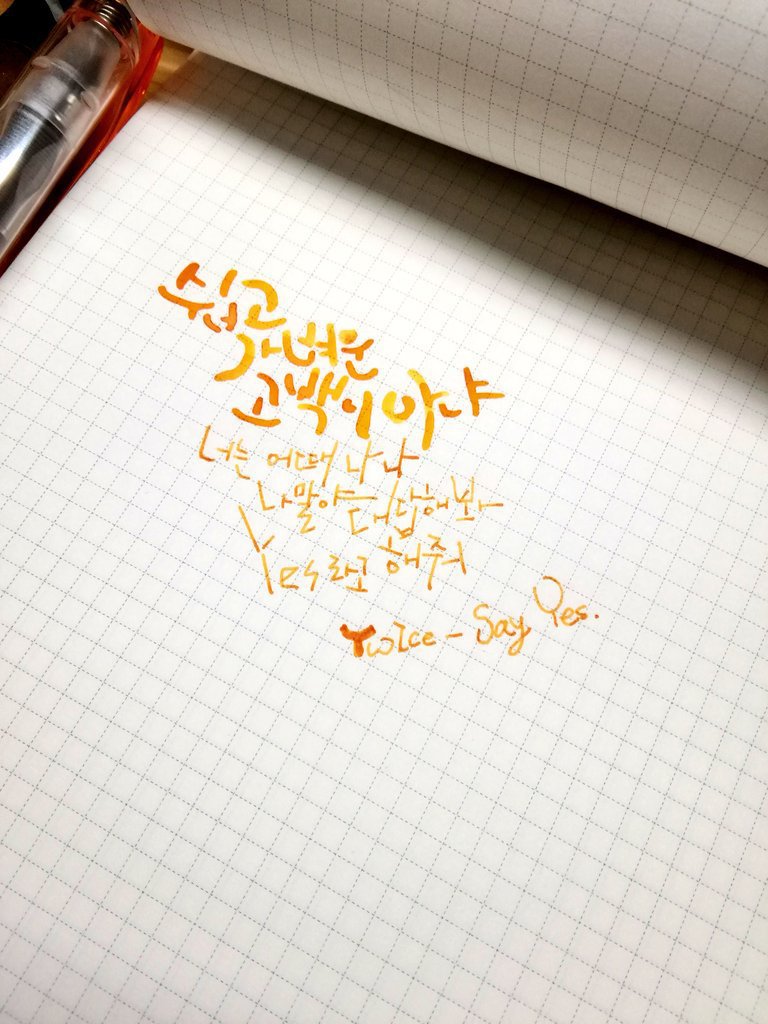 쉽고
가벼운
고백이 아냐
너는 어때 나 나
나 말야 대답해봐
Yes라고 해줘
Twice - Say Yes.